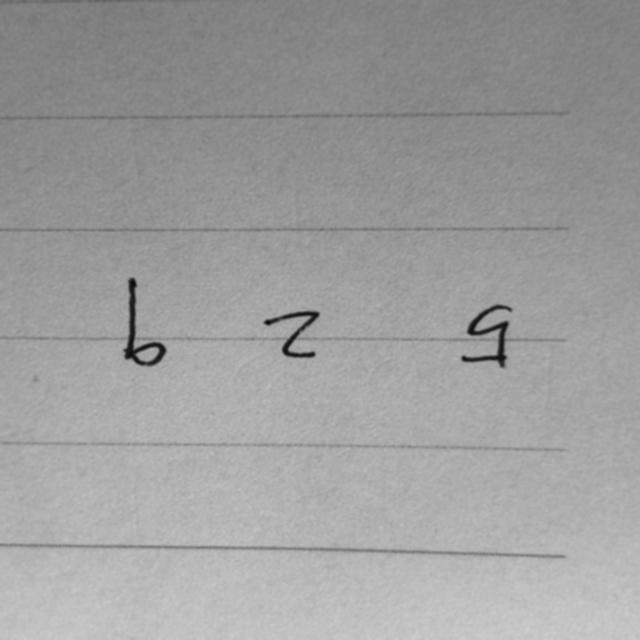 b z g